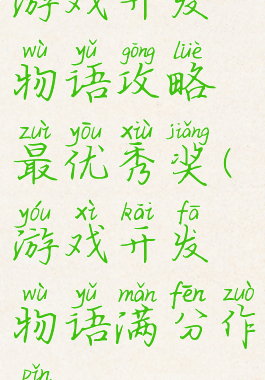 游戏开发
wù yǔ gōng lüè
物语攻略
zuì yōu xiù jiǎng
最优秀奖(
yóu xì kāi fā
游戏开发
wù yǔ mǎn fēn zuò
物语满分作
pǐn